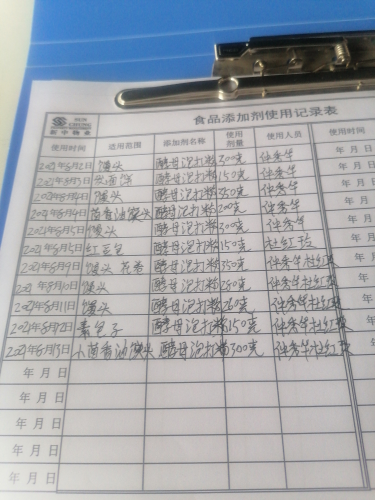 SUN CHUNG
新中物业
食品添加剂使用记录表
使用时间 适用范围 添加剂名称 使用剂量 使用人员 使用时间
2021年8月2日 馒头 酵母泡打粉300克 仵秀华 年 月 日
2021年8月3日 发面饼 酵母泡打粉150克 仵秀华 年 月 日
2021年8月4日 馒头 酵母泡打粉350克 仵秀华 年 月 日
2021年8月4日 茴香油馍头 酵母泡打粉200克 仵秀华 年 月 日
2021年8月5日 馒头 酵母泡打粉300克 仵秀华 年 月 日
2021年8月5日 红豆包 酵母泡打粉150克 杜红玲 年 月 日
2021年8月9日 馒头 花卷 酵母泡打粉350克 仵秀华杜红玲 年 月 日
2021年8月10日 馒头 酵母泡打粉250克 仵秀华杜红玲 年 月 日
2021年8月11日 馒头 酵母泡打粉260克 仵秀华杜红玲 年 月 日
2021年8月12日 素包子 酵母泡打粉150克 仵秀华杜红玲 年 月
2021年8月13日 小茴香油馍头 酵母泡打粉300克 仵秀华杜红玲 年 月
年 月 日 年 月
年 月 日 年 月
年 月 日 年
年 月 日 年
年 月 日 年